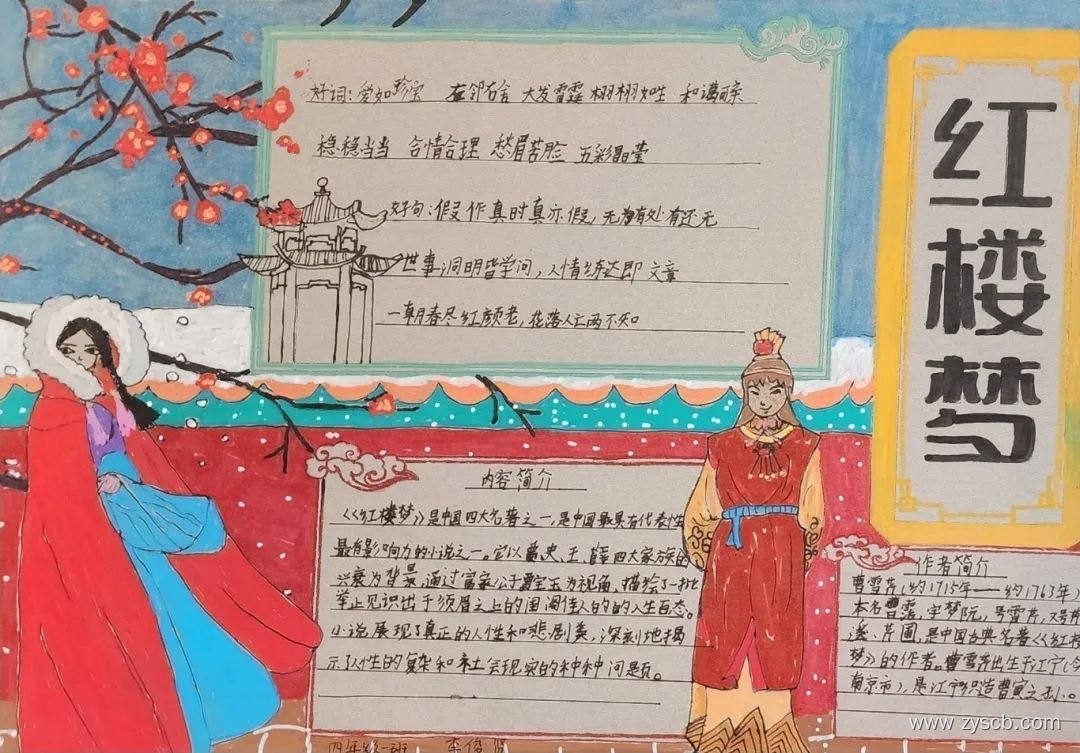 红楼梦
好词:爱如珍宝 左邻右舍 大发雷霆 栩栩如生 和蔼可亲
稳稳当当 合情合理 愁眉苦脸 五彩晶莹
好句:假作真时真亦假,无为有处有还无
世事洞明皆学问,人情练达即文章
一朝春尽红颜老,花落人亡两不知。
内容简介
《红楼梦》是中国四大名著之一,是中国最具有代表性
最有影响力的小说之一。它以贾、史、王、薛四大家族的
兴衰为背景,通过富家公子贾宝玉为视角,描绘了一批
举止见识出于须眉之上的闺阁佳人的的人生百态。
小说展现了真正的人性和悲剧美,深刻地揭
示了人性的复杂和社会现实的种种问题。
作者简介
曹雪芹(约1715年——约1763年)
本名曹霑,字梦阮,号雪芹,又号芹
溪、芹圃,是中国古典名著《红楼
梦》的作者。曹雪芹出生于江宁(今
南京市),是江宁织造曹寅之孙。
四年级一班 李俊
www.zyscb.com